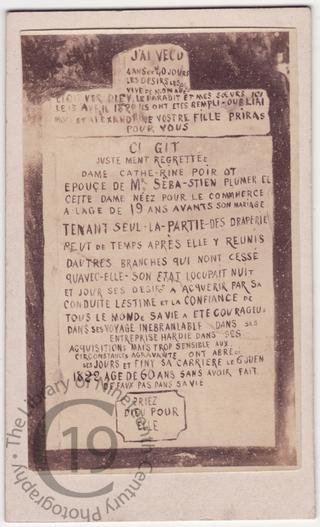 J'AI VECU
4 ANS ET 40 JOURS
LES DESIRS
VIVE DE MON AGE
DIEU LE PARADIT ET MES SŒURS
LE 13 AVRIL 1820 ILS ONT ETES REMPLI - OUBLIAI
MOI ET ALEXANDRINE VOSTRE FILLE PRIRAS
POUR VOUS
CI GIT
JUSTE MENT REGRETTEE
DAME CATHE-RINE POIR OT
EPOUCE DE Mr SEBA-STIEN PLUMER EL
CETTE DAME NÉEZ POUR LE COMMERCE
A LAGE DE 19 ANS AVANTS SON MARIAGE
TENANT SEUL-LA-PARTIE-DES DRAPERIE
PEUT DE TEMPS APRÈS ELLE Y REUNIS
DAUTRES BRANCHES QUI NONT CESSÉ
QUAVEC-ELLE- SON ETAT LOCUPAIT NUIT
ET JOUR SES DESIR A AQUERIR PAR SA
CONDUITE LESTIME ET LA CONFIANCE DE
TOUS LE MONDE SA VIE A ETE COURAGIEU
DANS SES VOYAGE INEBRANLABLE DANS SES
ENTREPRISE HARDIE DANS SES
ACQUISITIONS MAIS TROP SENSIBLE AUX
CIRCONSTANCES AGRAVANTE ONT ABRE
SES JOURS ET FINY SA CARRIERE LE 6 JUEN
1829 AGE DE 60 ANS SANS AVOIR FAIT
DE FAUX PAS DANS SA VIE
PRIEZ
DIEU POUR
ELLE
C19
The Library Of Nineteenth-Century Photography